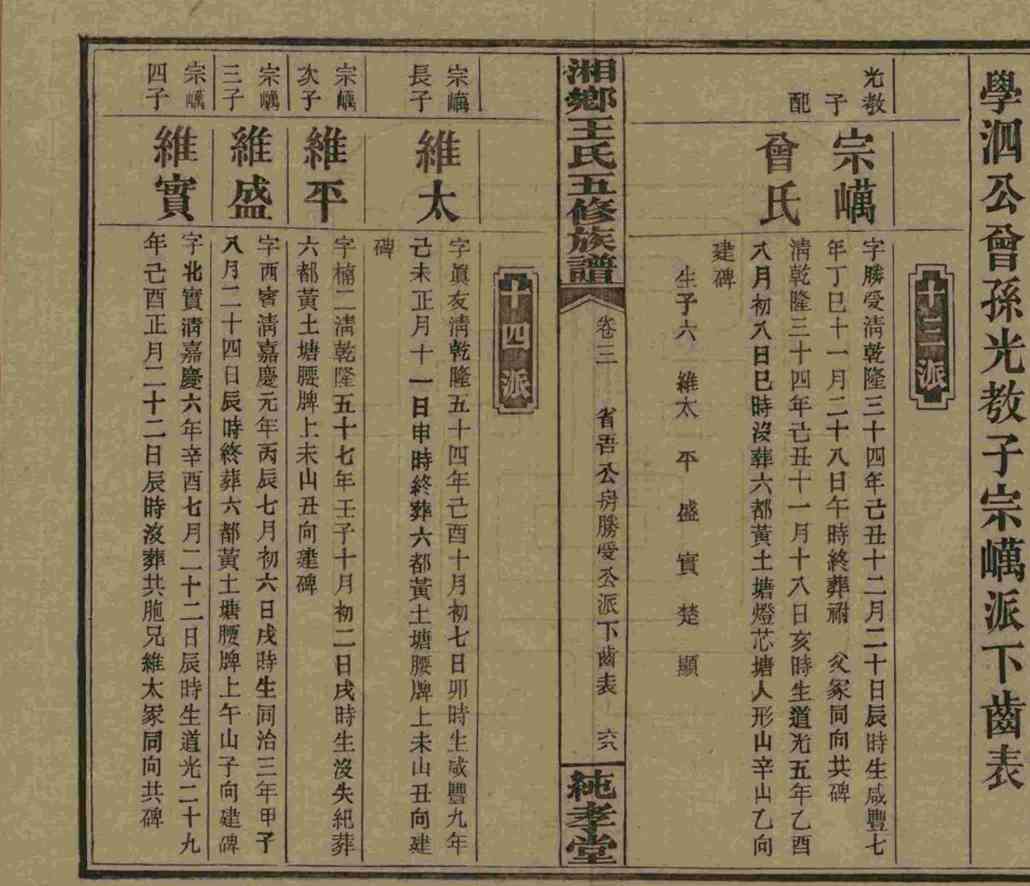 學泗公曾孫光教子宗㠣派下齒表
十三派
光教子
宗㠣
字勝受清乾隆三十四年己丑十二月二十日辰時生咸豐七
年丁巳十一月二十八日午時終葬祔 父冢同向共碑
配
曾氏
清乾隆三十四年己丑十一月十八日亥時生道光五年乙酉
八月初八日巳時沒葬六都黃土塘燈芯塘人形山辛山乙向
建碑
生子六 維太 平 盛 實 楚 顯
湘鄉王氏五修族譜
卷三
省吾公房勝受公派下齒表
六八
純孝堂
十四派
宗㠣長子
維太
字真友清乾隆五十四年己酉十月初七日卯時生咸豐九年
己未正月十一日申時終葬六都黃土塘腰牌上未山丑向建
碑
宗㠣次子
維平
字楠二清乾隆五十七年壬子十月初二日戌時生沒失紀葬
六都黃土塘腰牌上未山丑向建碑
宗㠣三子
維盛
字西賓清嘉慶元年丙辰七月初六日戌時生同治三年甲子
八月二十四日辰時終葬六都黃土塘腰牌上午山子向建碑
宗㠣四子
維實
字北實清嘉慶六年辛酉七月二十二日辰時生道光二十九
年己酉正月二十二日辰時沒葬共胞兄維太冢同向共碑